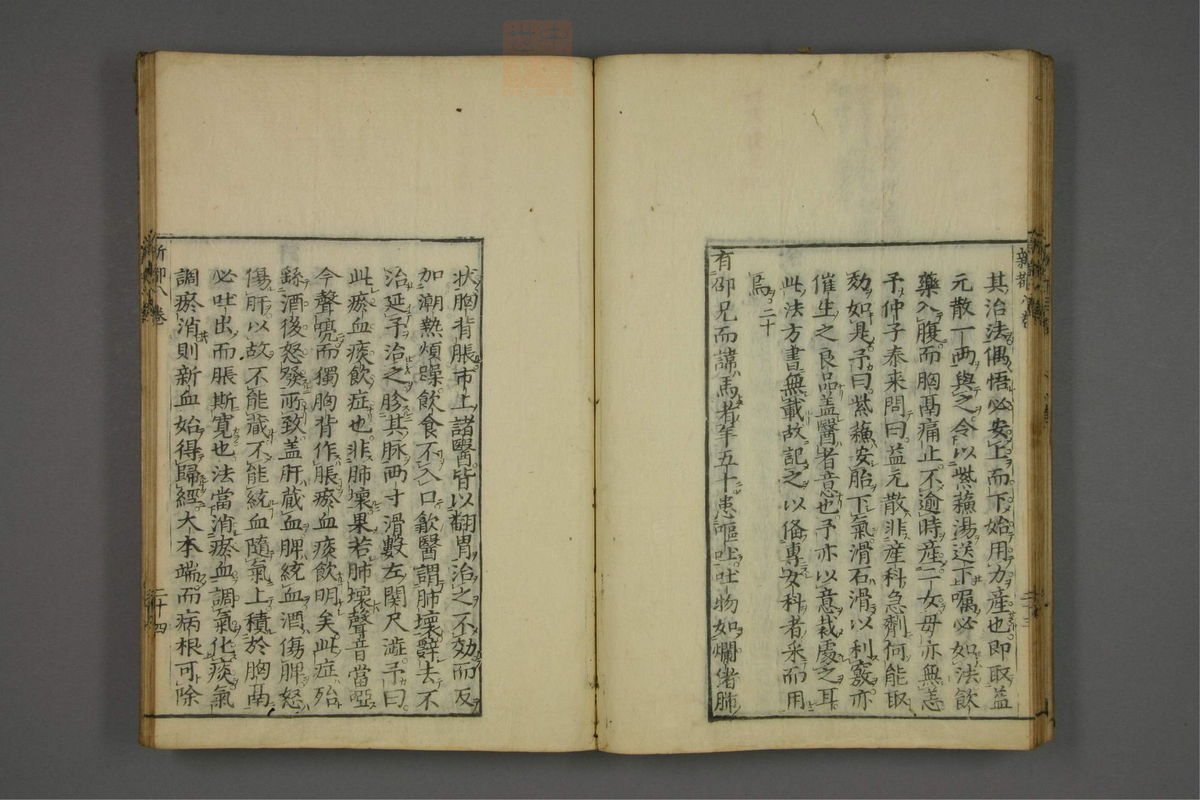 新都八卷
其治法偶悟必安上而下始用力産也即取益
元散一両與之令以紫蘓湯送下嘱必如法飲
藥入腹而胸鬲痛止不逾時産一女母亦無恙
予仲子泰来問曰益元散非産科急劑何能取
効如是予曰紫蘓安胎下氣滑石滑以利竅亦
催生之良品盖醫者意也予亦以意裁處之耳
此法方書無載故記之以俻專女科者采而用
焉二十
有邵兄而諱馬者年五十患嘔吐吐物如爛猪肺
状胸背脹市上諸醫皆以翻胃治之不効而反
加潮熱煩躁飲食不入口歙醫謂肺壊辭去不
治延予治之胗其脉两寸滑數左関尺澁予曰
此瘀血痰飲症也非肺壊果若肺壊聲音當啞
今聲喨而獨胸背作脹瘀血痰飲明矣此症殆
繇酒後怒發所致盖肝蔵血脾統血酒傷脾怒
傷肝以故不能蔵不能統血隨氣上積於胸鬲
必吐出而脹斯寛也法當消瘀血調氣化痰氣
調瘀消則新血始得歸經大本端而病根可除
新都八卷
二十四